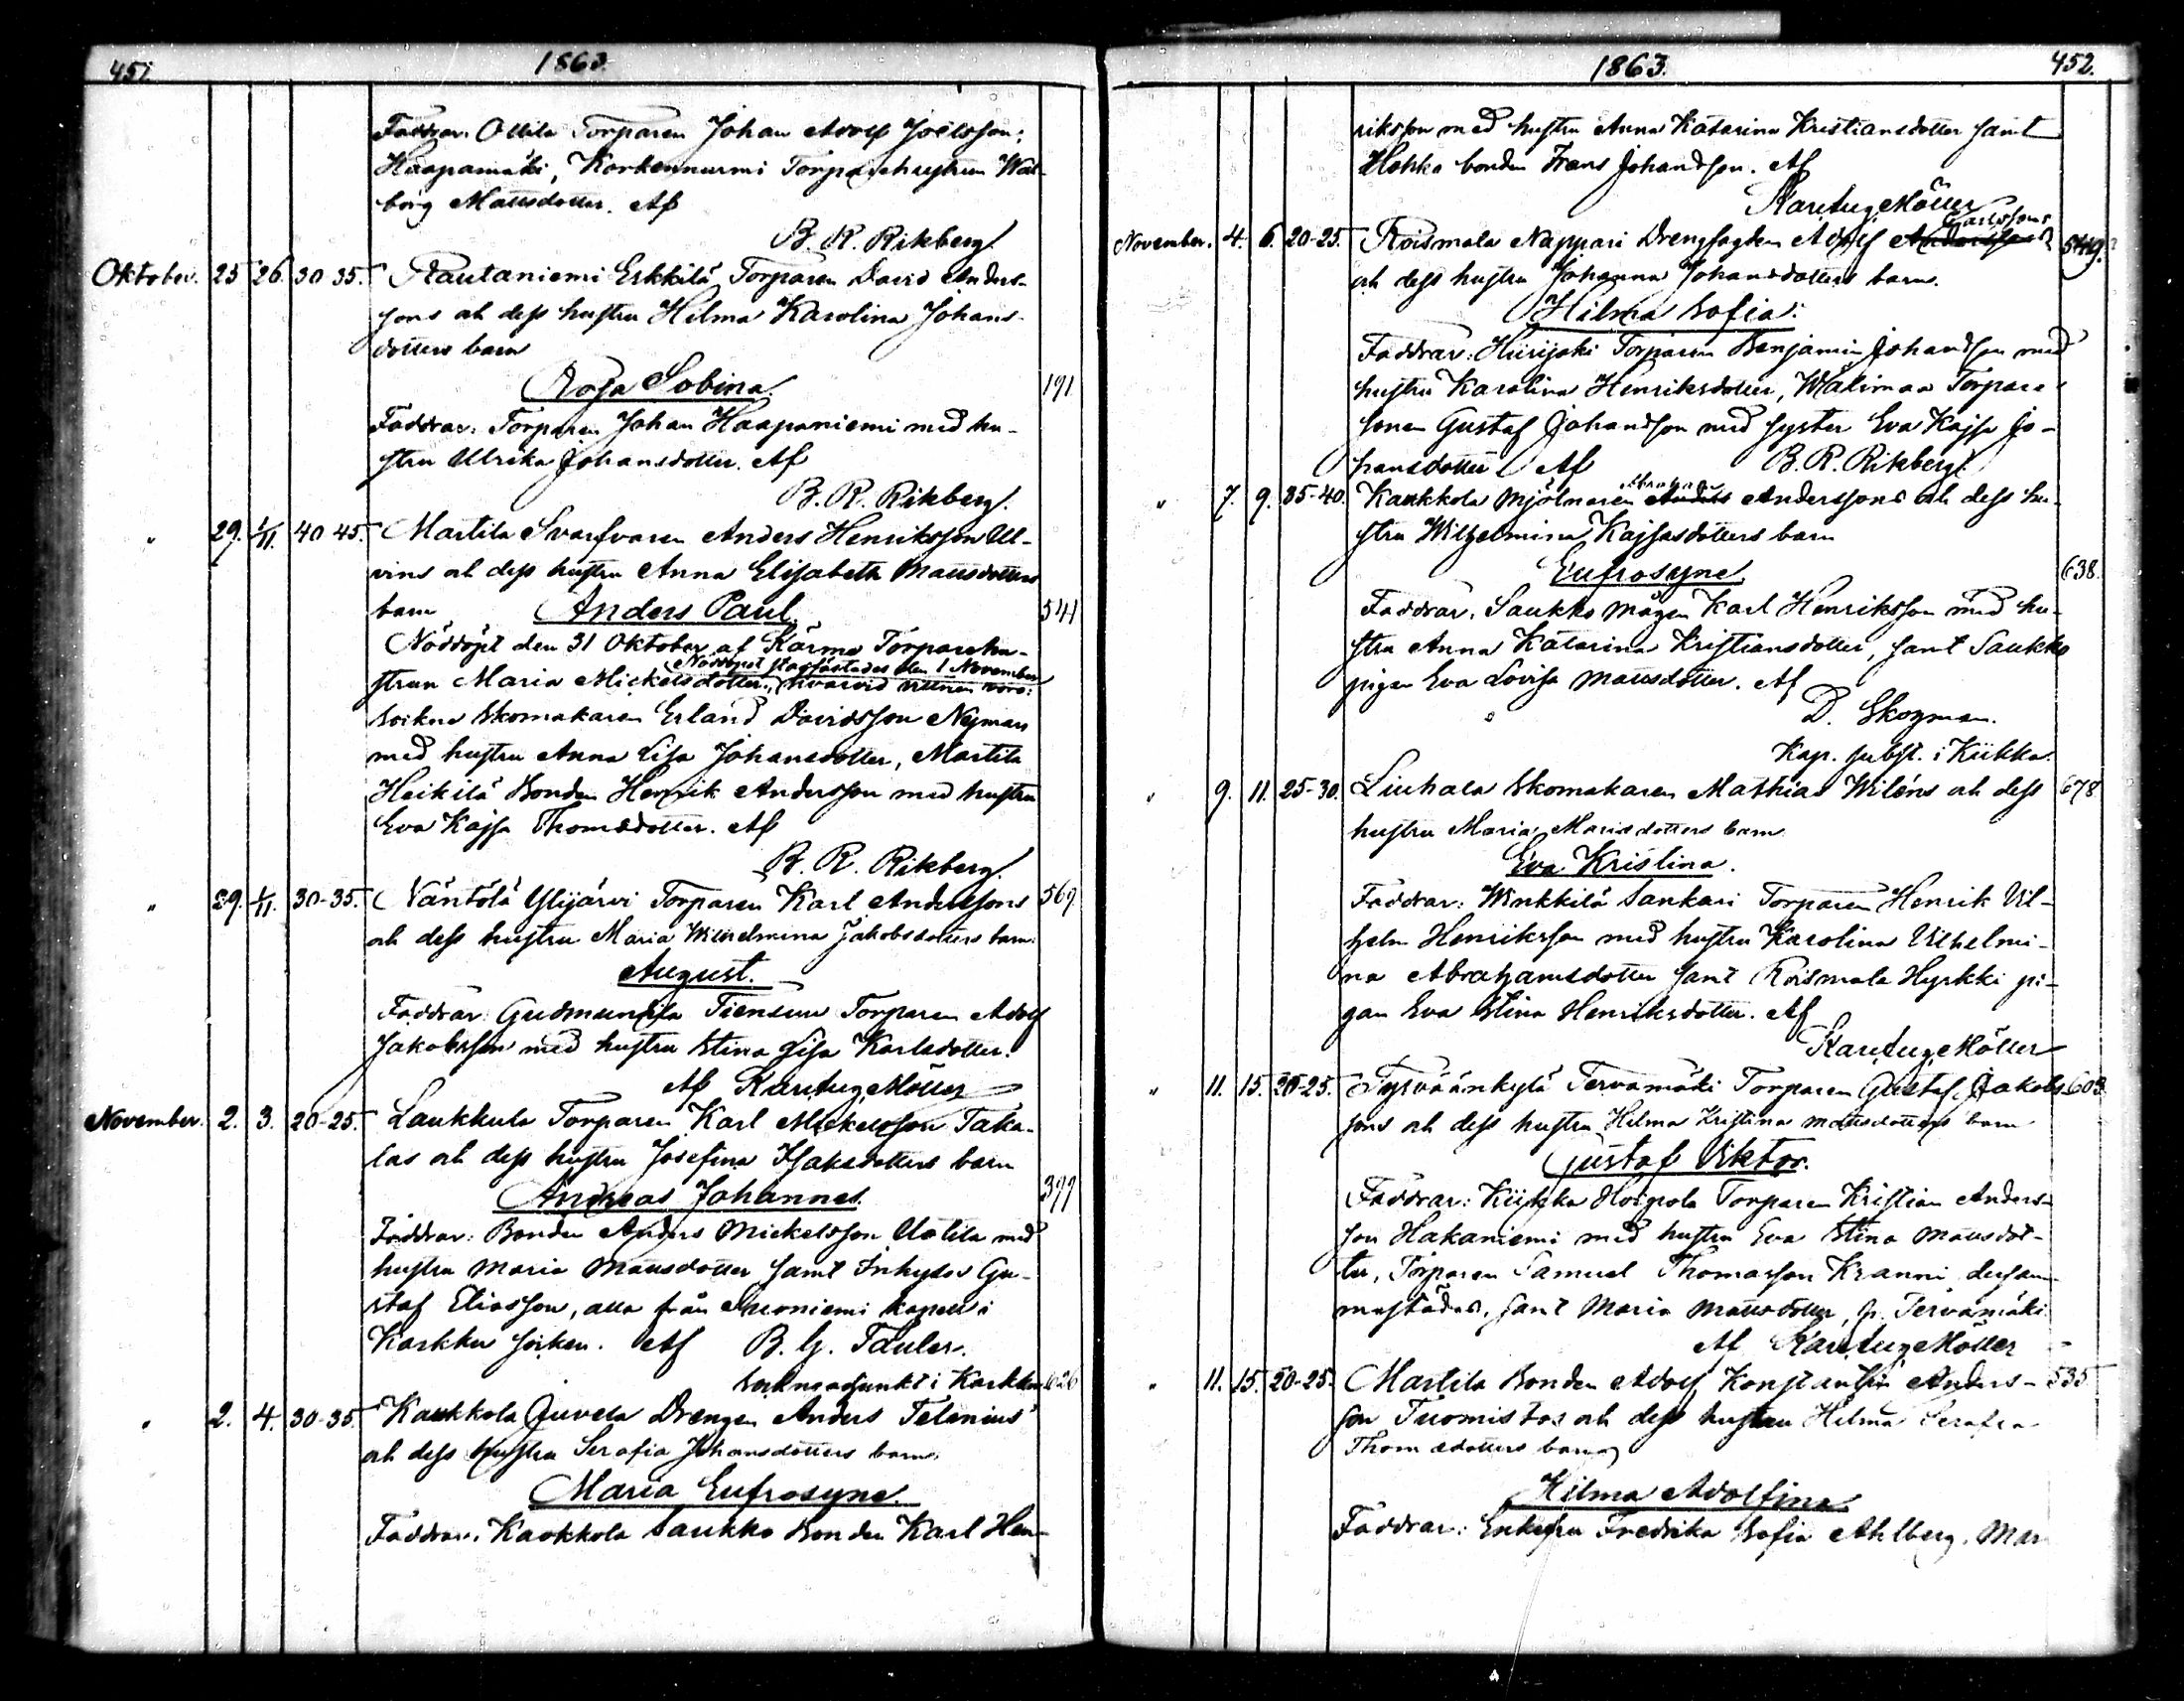 451.
1863.
Faddrar: Ollila Torparen Johan Adolf Joelsson;
Haapamäki, Korkeenurmi Torparehustrun Wal-
borg Mattsdotter. Af
B. R. Rikberg.
Oktober. 25 26. 30-35. Rautaniemi Erkkilä Torparen David Anders-
sons och dess hustru Hilma Karolina Johans-
dotters barn
Rosa Sobina. 191
Faddrar: Torparen Johan Haapaniemi med hu-
stru Ulrika Johansdotter. Af
B. R. Rikberg.
" 29. 1/11. 40-45. Martila Svarfvaren Anders Henriksson Ul-
vins och dess hustru Anna Elisabeth Mattsdotters
barn Anders Paul. 541
Nöddöpt den 31 Oktober af Kärmo Torparehu-
Nöddopet stadfästades den 1 November
strun Maria Mickelsdotter, hvarvid vittnen voro:
Sockne Skomakaren Erland Davidsson Nyman
med hustru Anna Lisa Johansdotter, Martila
Heikilä Bonden Henrik Andersson med hustru
Eva Kajsa Thomasdotter. Af
B. R. Rikberg.
" 29. 1/11. 30-35. Näntölä Ylijärvi Torparen Karl Anderssons 569
och dess hustru Maria Wilhelmina Jakobsdotters barn
August.
Faddrar: Gudmundila Tiensuu Torparen Adolf
Jakobsson med hustru Stina Lisa Karlsdotter.
Af Karl Aug. Möller
November. 2. 3. 20-25. Laukkula Torparen Karl Mickelsson Taka-
las och dess hustru Josefina Isaksdotters barn
Andreas Johannes. 399
Faddrar: Bonden Anders Mickelsson Uotila med
hustru Maria Mattsdotter samt Inhyses Gu-
staf Eliasson, alla från Suoniemi kapell i
Karkku socken. Af B. G. Tauler.
Sockneadjunkt i Karkku 626
" 2. 4. 30-35. Kaukkola Juvela Drengen Anders Telenius'
och dess hustru Serafia Johansdotters barn
Maria Eufrosyne.
Faddrar: Kaukkola Saukko Bonden Karl Hen-
1863.
452.
riksson med hustru Anna Katarina Kristiansdotter samt
Hohko bonden Frans Johansson. Af
Karl Aug. Möller
Carlssons
November. 4. 6. 20-25. Roismala Nappari Drengfogden Adolf Anderssons 549.
och dess hustru Johanna Johansdotters barn.
Hilma Sofia.
Faddrar: Hiirijoki Torparen Benjamin Johansson med
hustru Karolina Henriksdotter, Wälimaa Torpare
sonen Gustaf Johansson med syster Eva Kajsa Jo-
hansdotter Af B. R. Rikberg.
Abraham
" 7. 9. 35-40. Kaukkola Mjölnaren Anders Anderssons och dess hu-
stru Wilhelmina Kajsasdotters barn
Eufrosyne 638.
Faddrar. Saukko mågen Karl Henriksson med hu-
stru Anna Katarina Kristiansdotter, samt Saukko
pigan Eva Lovisa Mattsdotter. Af
D. Skogman.
Kap. subst. i Kiikka.
" 9. 11. 25-30. Liuhala Skomakaren Mathias Wiléns och dess 678
hustru Maria Mariasdotters barn
Eva Kristina.
Faddrar: Winkkilä Sankari Torparen Henrik Vil-
helm Henriksson med hustru Karolina Vilhelmi-
na Abrahamsdotter samt Roismala Hyrkki pi-
gan Eva Stina Henriksdotter. Af
Karl Aug. Möller
" 11. 15. 20-25. Tyrväänkylä Tervamäki Torparen Gustaf Jakobs- 603
sons och dess hustru Hilma Kristina Mattsdotters barn
Gustaf Viktor.
Faddrar: Kiikka Hoipola Torparen Kristian Anders-
son Hakaniemi med hustru Eva Stina Mattsdot-
ter, Torparen Samuel Thomasson Kranni dersam-
mastädes, samt Maria Mattsdotter, p. Tervamäki.
Af Karl Aug. Möller
" 11. 15. 20-25. Martila Bonden Adolf Konstantin Anders- 535
son Tuomistos och dess hustru Hilma Serafia
Thomasdotters barn
Hilma Adolfina
Faddrar: Enkefru Fredrika Sofia Ahlberg. Mar